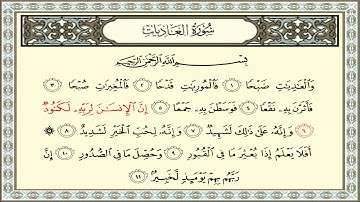 سُورَةُ العَادِيَاتِ
بِسْمِ ٱللَّهِ ٱلرَّحْمَٰنِ ٱلرَّحِيمِ
وَٱلْعَٰدِيَٰتِ ضَبْحًا ١ فَٱلْمُورِيَٰتِ قَدْحًا ٢ فَٱلْمُغِيرَٰتِ صُبْحًا ٣
فَأَثَرْنَ بِهِۦ نَقْعًا ٤ فَوَسَطْنَ بِهِۦ جَمْعًا ٥ إِنَّ ٱلْإِنسَٰنَ لِرَبِّهِۦ لَكَنُودٌ
٦ وَإِنَّهُۥ عَلَىٰ ذَٰلِكَ لَشَهِيدٌ ٧ وَإِنَّهُۥ لِحُبِّ ٱلْخَيْرِ لَشَدِيدٌ ٨
أَفَلَا يَعْلَمُ إِذَا بُعْثِرَ مَا فِى ٱلْقُبُورِ ٩ وَحُصِّلَ مَا فِى ٱلصُّدُورِ ١٠ إِنَّ
رَبَّهُم بِهِمْ يَوْمَئِذٍ لَّخَبِيرٌۢ ١١